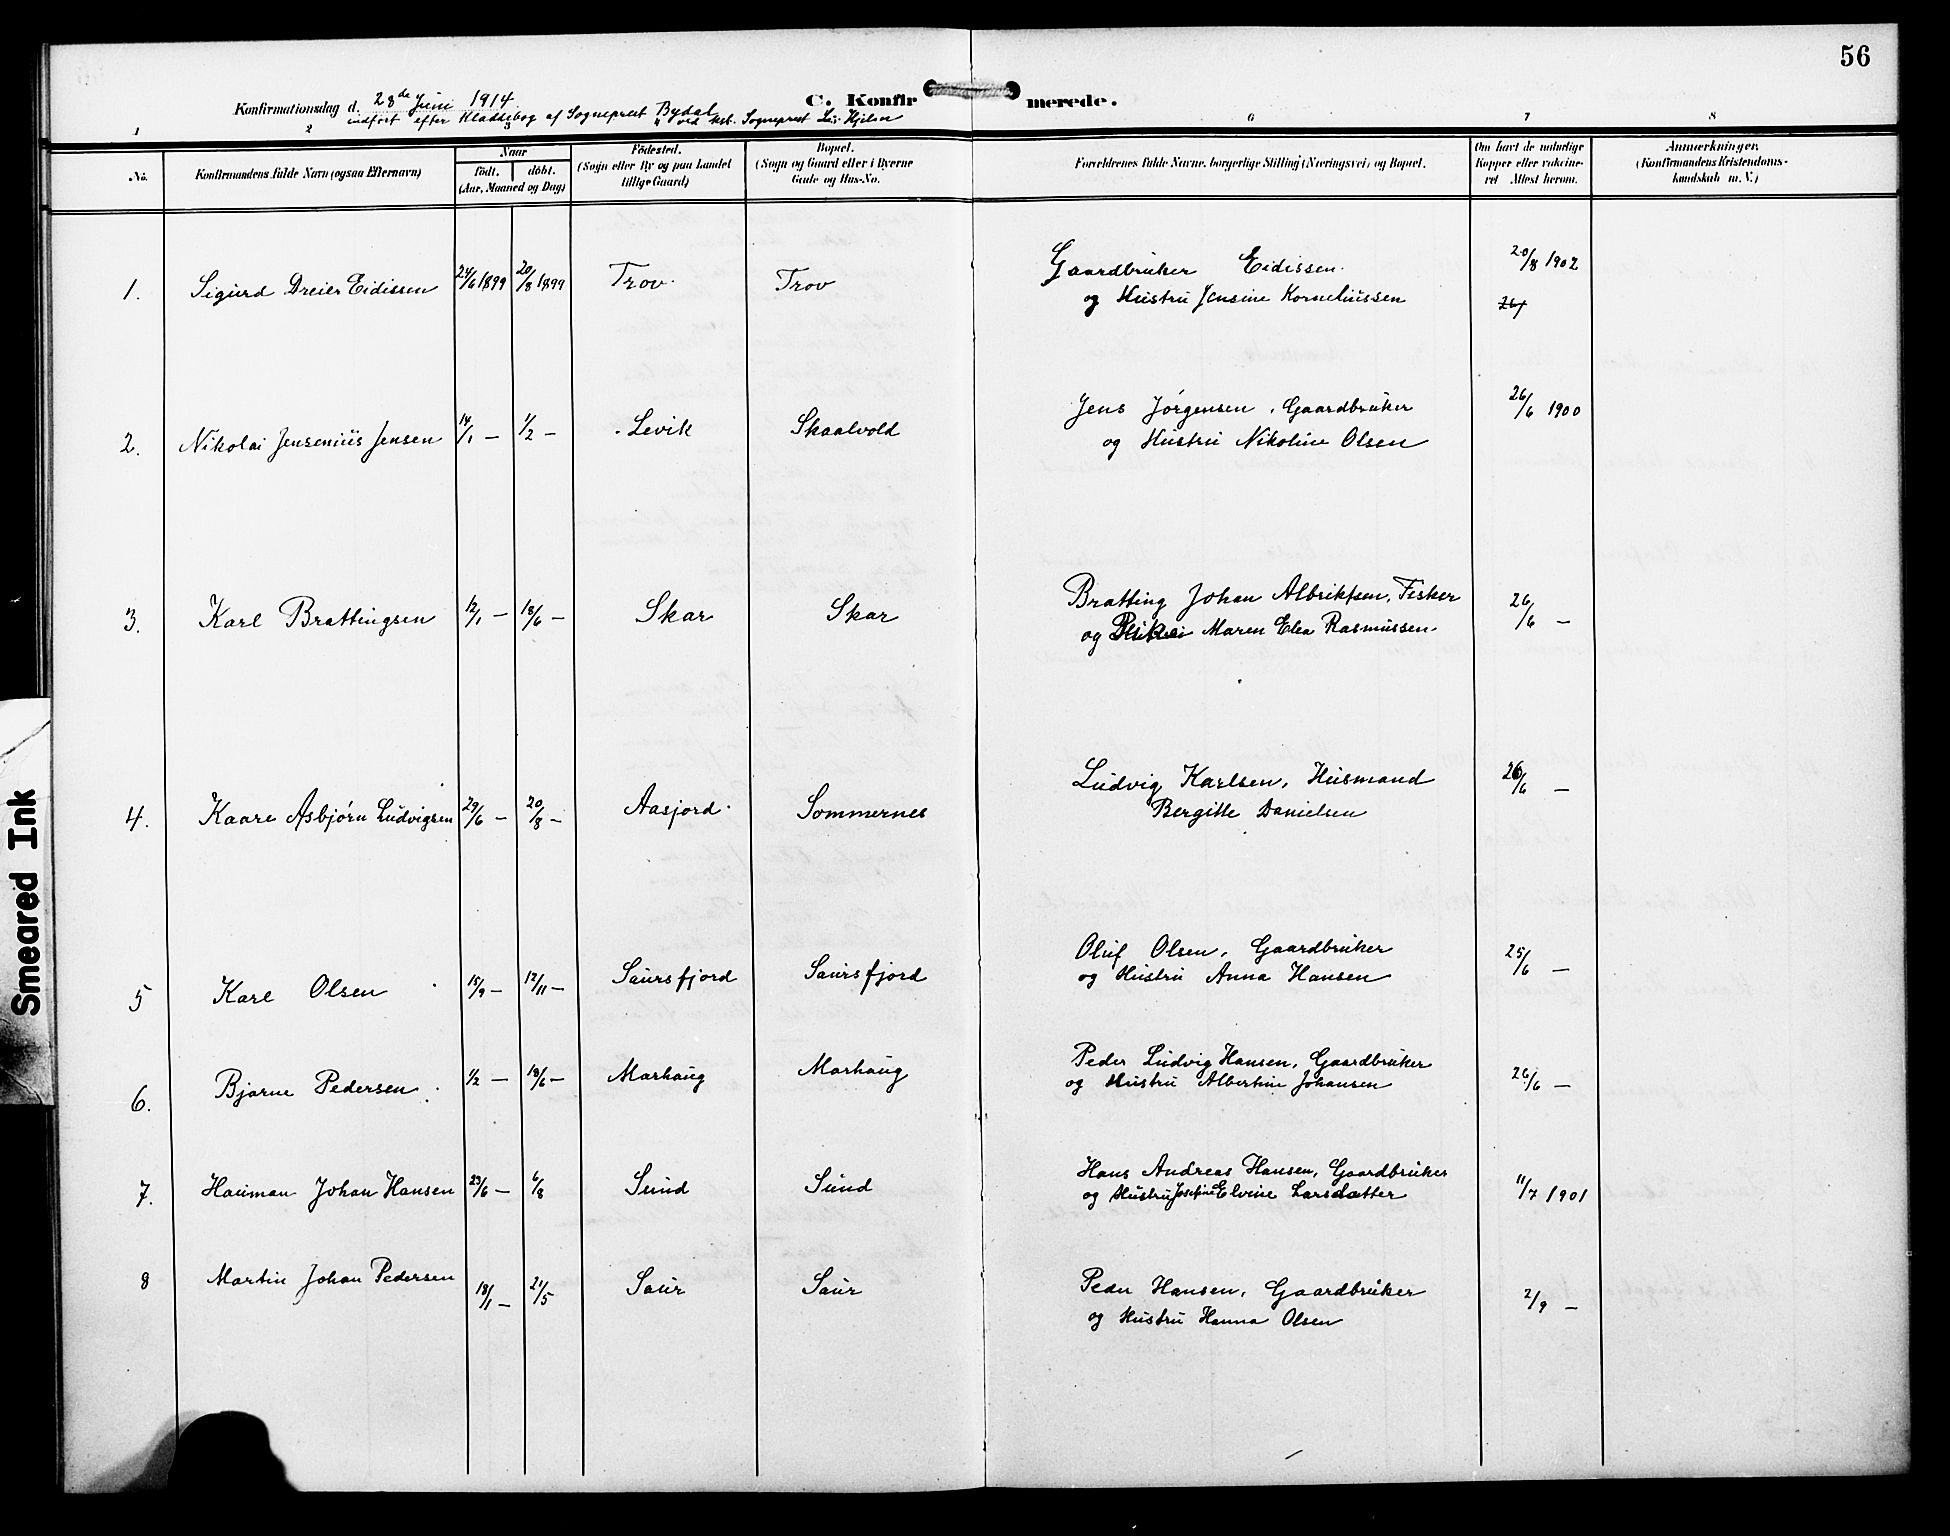 56
Konfirmationsdag d. 28de Juni 1914
C. Konfirmerede.
indført efter Klattebog af Sogneprest Bydal
ved kst. Sogneprest Hjelser
1 2 3 6 7 8
No.
Konfirmandens fulde Navn (ogsaa Efternavn)
Naar
födt. döbt.
(Aar, Maaned og Dag)
Födested.
(Sogn eller By og paa Landet
tillige Gaard)
Bopæl.
(Sogn og Gaard eller i Byerne
Gade og Hus-No.
Forældrenes fulde Navne, borgerlige Stilling (Næringsvei) og Bopæl.
Om havt de naturlige
Kopper eller vakcine-
ret Attest herom.
Anmærkninger.
(Konfirmandens Kristendoms-
kundskab m. V.)
1. Sigurd Dreier Eidissen 24/6 1899 20/8 1899 Trov. Trov Gaardbruker Eidissen. 20/8 1902
og Hustru Jensine Korneliussen 26/
2. Nikolai Jensenius Jensen 14/1 — 1/2 — Levik Skaalvold Jens Jörgensen, Gaardbruker 26/6 1900
og Hustru Nikoline Olsen
3. Karl Brattingsen 12/1 — 18/6 — Skar Skar Bratting Johan Albriktsen, Fisker 26/6 —
og Pike Maren Elea Rasmussen.
4. Kaare Asbjørn Ludvigsen 29/6 — 20/8 — Aasjord. Sommernes Ludvig Karlsen, Husmand 26/6 —
Bergitte Danielsen
5 Karl Olsen 15/9 — 12/11 — Saursfjord Saursfjord Oluf Olsen, Gaardbruker 25/6 —
og Hustru Anna Hansen
6. Bjarne Pedersen 1/2 — 18/6 — Marhaug Marhaug Peder Ludvig Hansen, Gaardbruker 26/6 —
og Hustru Albertine Johansen
7. Hauman Johan Hansen 23/6 — 6/8 Sund Sund Hans Andreas Hansen, Gaardbruker 11/7 1901
og Hustru Josefine Elvine Larsdatter
8 Martin Johan Pedersen 18/1 — 21/5 Saur Saur Peder Hansen, Gaardbruker 2/9 —
og Hustru Hanna Olsen
Smeared Ink